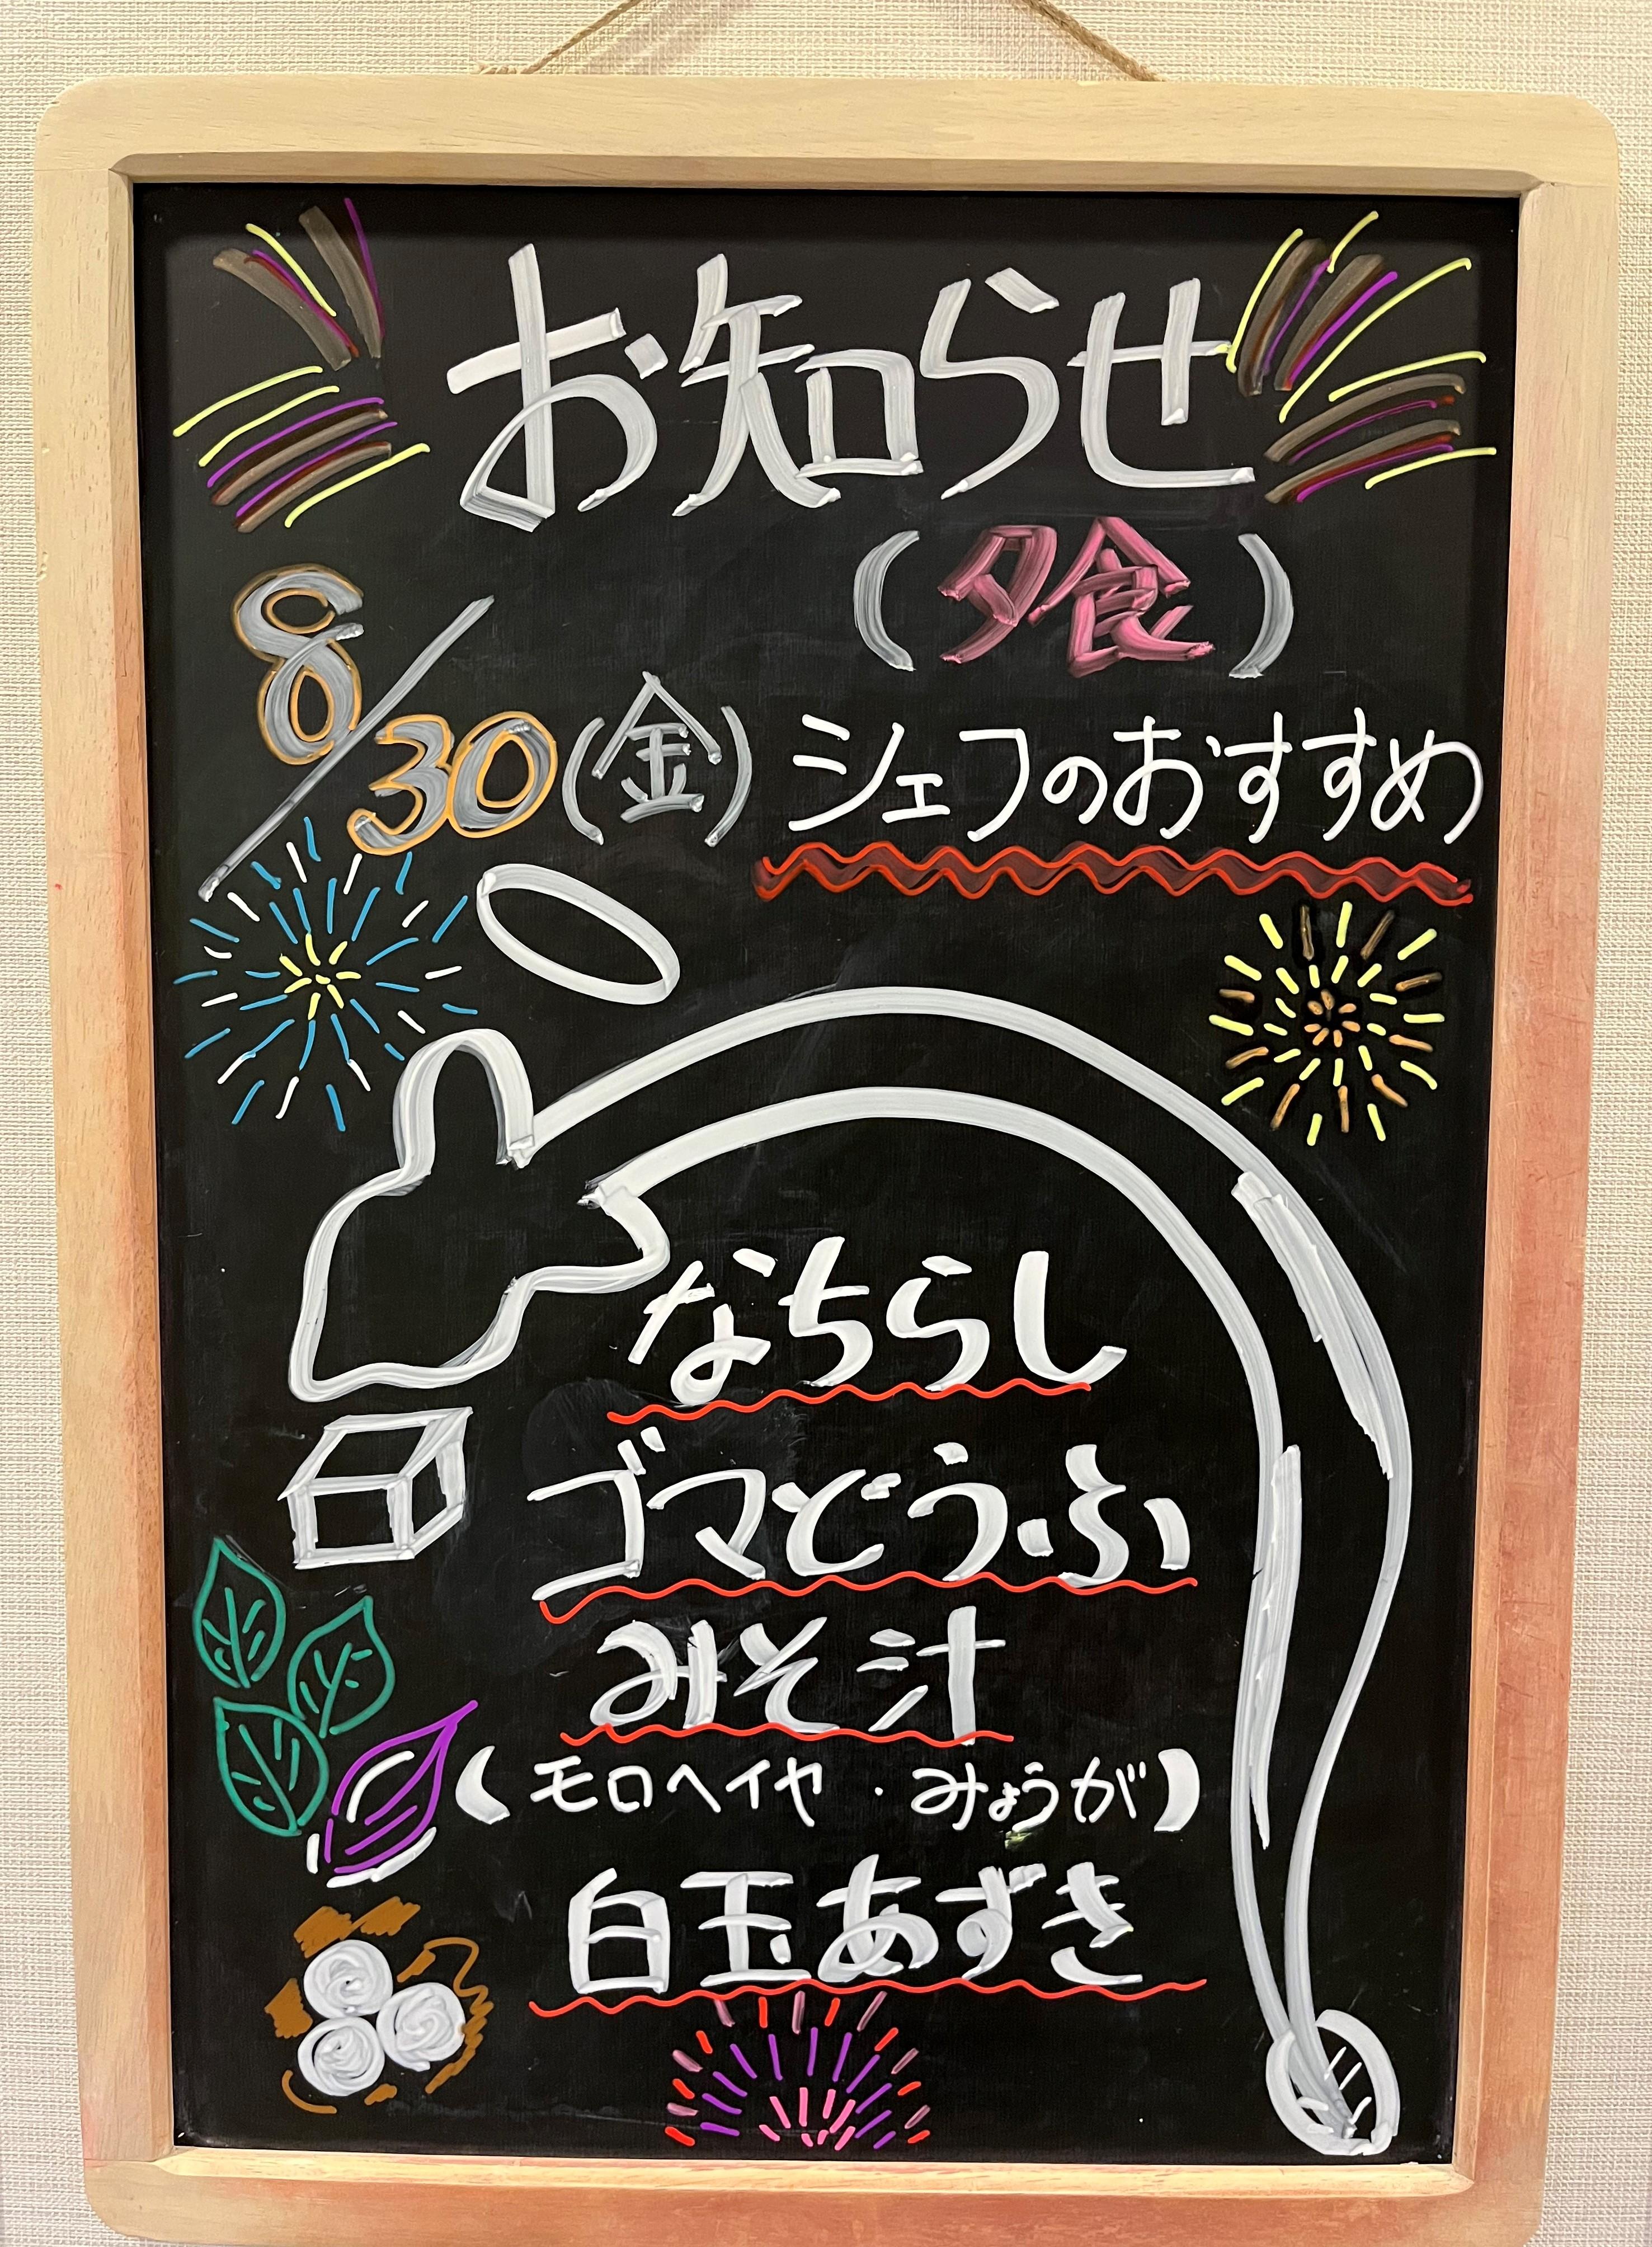 お知らせ
(夕食)
8/30(金) シェフのおすすめ
なちらし
ゴマどうふ
みそ汁
(モロヘイヤ・みょうが)
白玉あずき